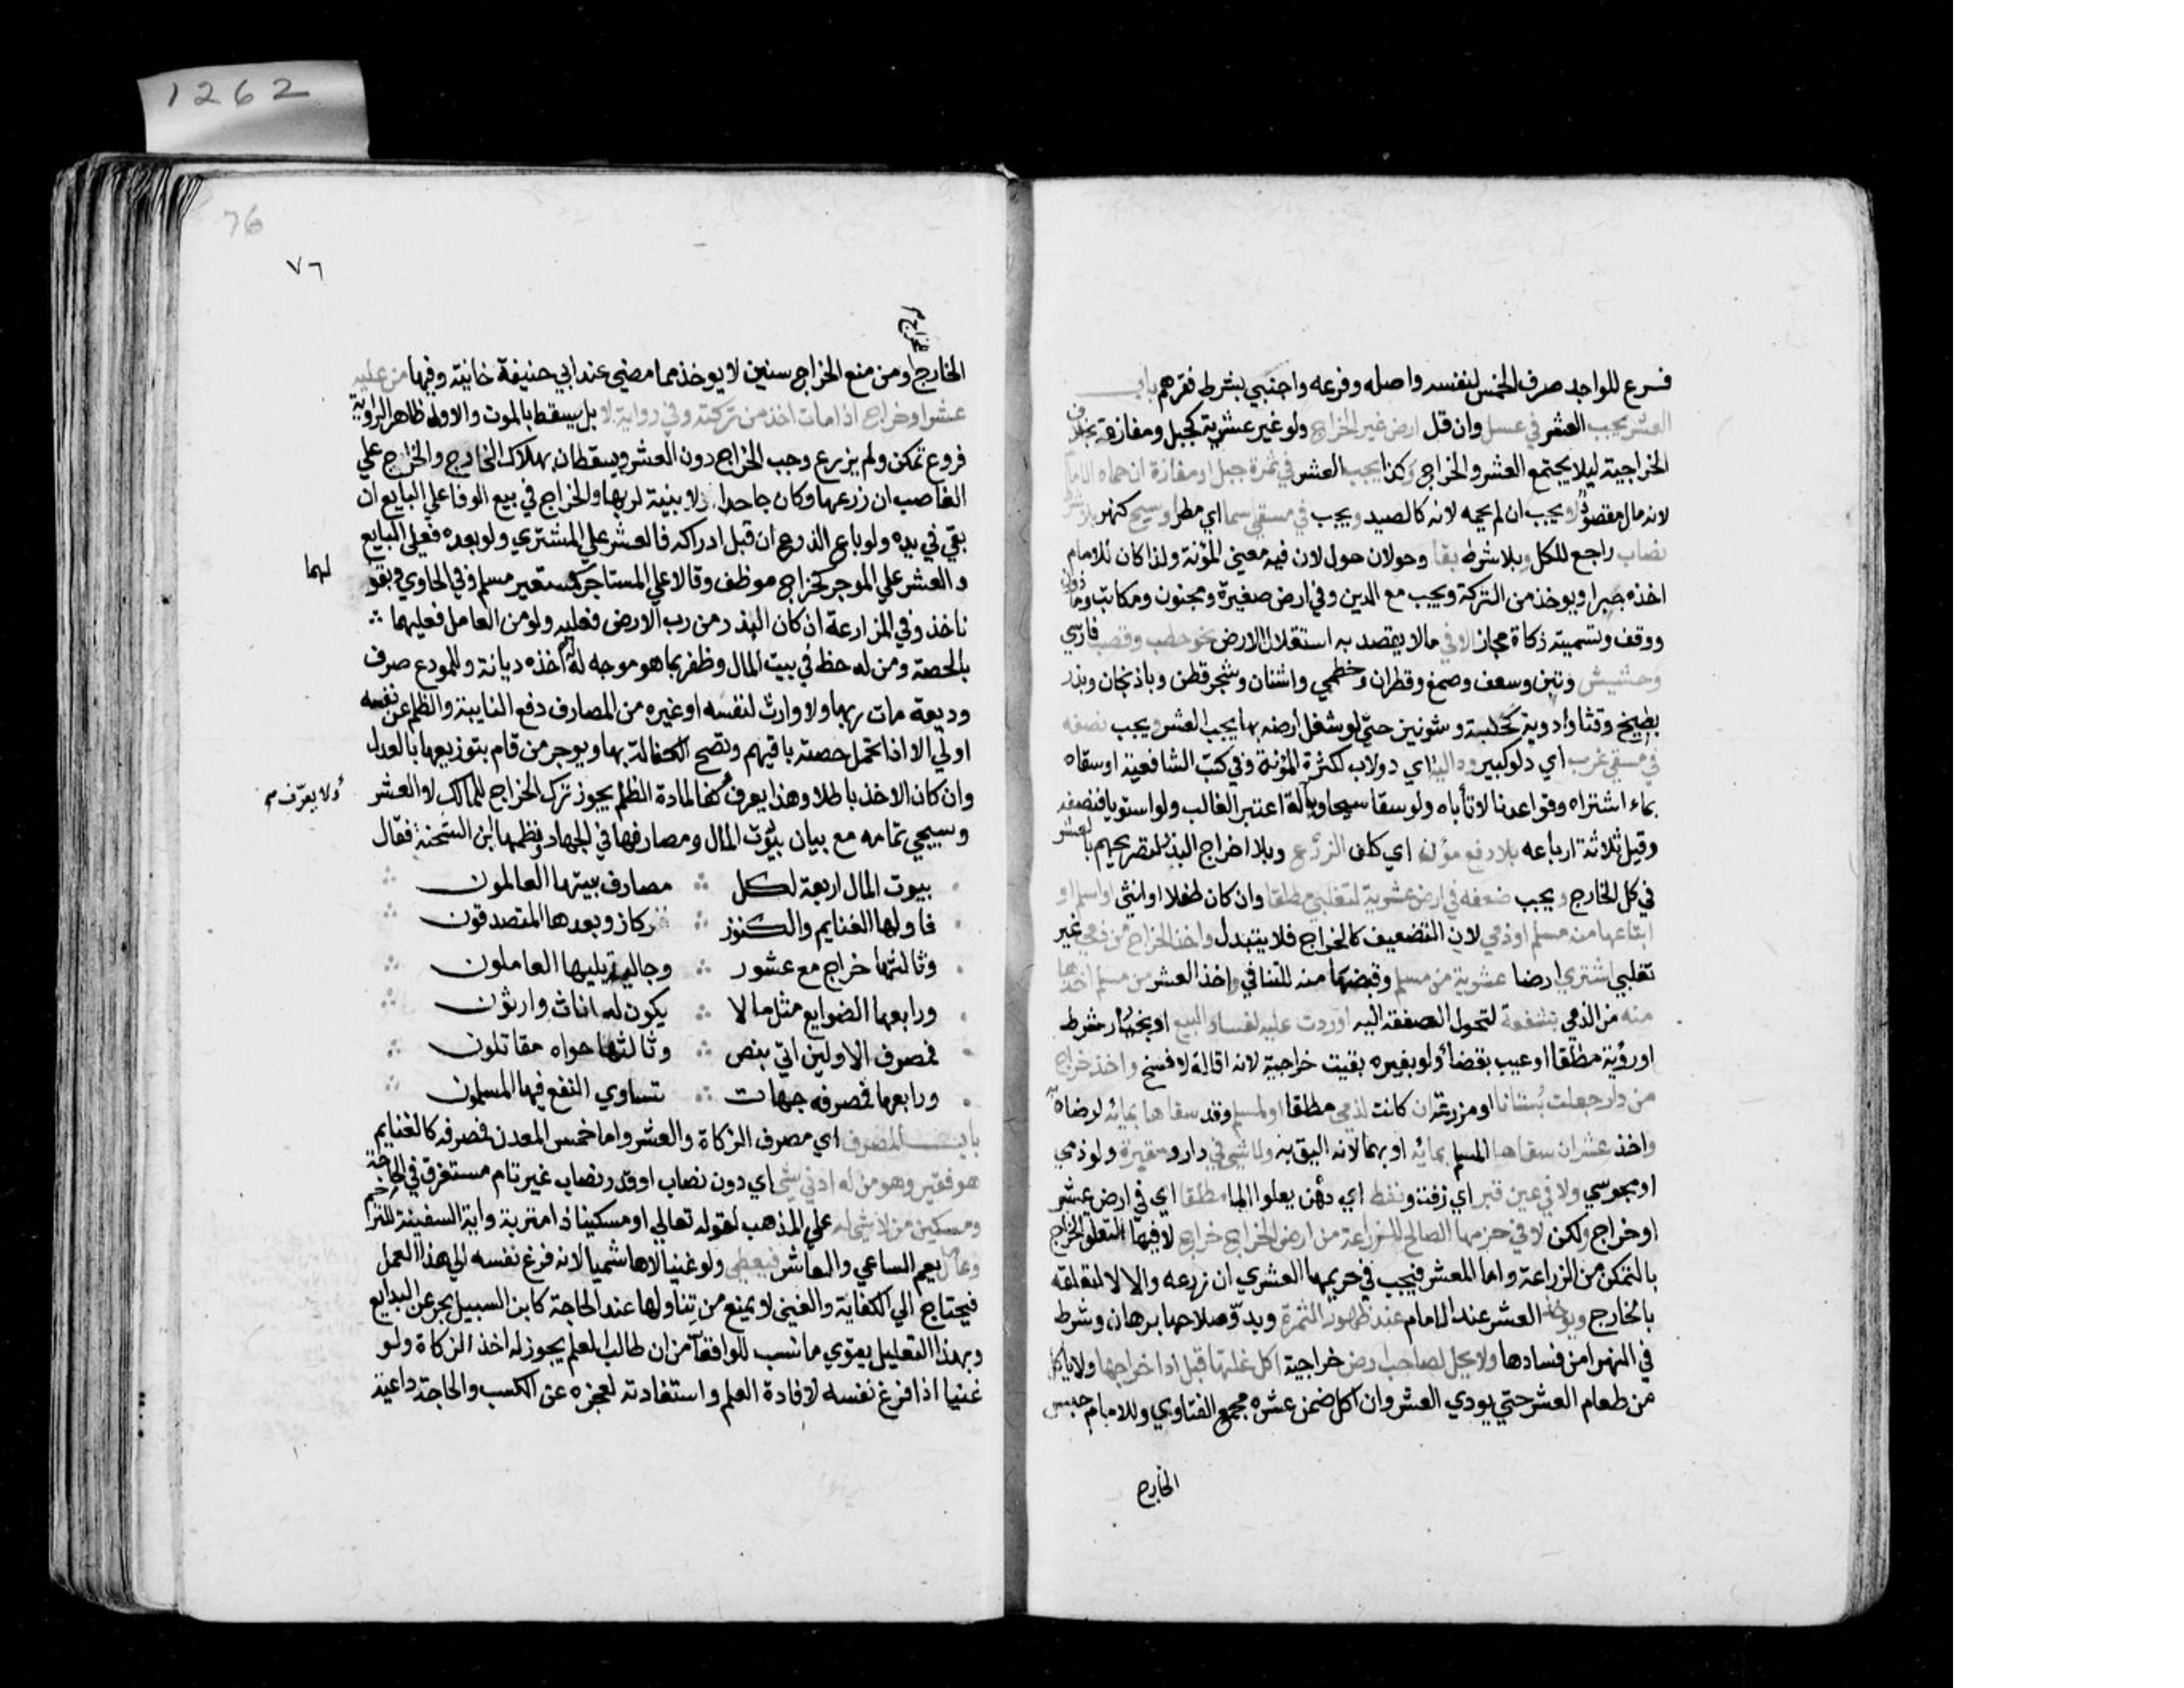 1262
76
٧٦
فرع للواجد صرف الخمس لنفسه واصله وفرعه واجنبي بشرط فقرهم باب
العشر يجب العشر في عسل وان قل ارض غير الخراج ولو غير عشرية كجبل ومفازة بخلاف
الخراجية ليلا يجتمع العشر والخراج وكذا يجب العشر في ثمرة جبل او مفازة ان حماه الامام
لانه مال مقصود لا يجب ان لم يحمه لانه كالصيد ويجب في مسقي سما اي مطر وسيح كنهر بلا شرط
نصاب راجع للكل وبلا شرط بقا وحولان حول لان فيه معني المؤنة ولذا كان للامام
اخذه جبرا ويوخذ من التركة ويجب مع الدين وفي ارض صغيرة ومجنون ومكاتب وماذون
ووقف وتسميته زكاة مجاز الا في مالا يقصد به استغلال الارض نحو حطب وقصب فارسي
وحشيش وتبن وسعف وصمغ وقطران وخطمي واشنان وشجر قطن وباذنجان وبذر
بطيخ وقثا وادوية كحلبة وشونيز حتي لو شغل ارضه بها يجب العشر ويجب نصفه
في مسقي غرب اي دلو كبير ودالية اي دولاب لكثرة المؤنة وفي كتب الشافعية او سقاه
بماء اشتراه وقواعدنا لا تأباه ولو سقا سيحا وبآلة اعتبر الغالب ولو استويا فنصفه
وقيل ثلاثة ارباعه بلا رفع مؤن اي كلف الزرع وبلا اخراج البذر لتصريحهم بالعشر
في كل الخارج ويجب ضعفه في ارض عشرية لتغلبي مطلقا وان كان طفلا او انثي او اسلم او
ابتاعها من مسلم او ذمي لان التضعيف كالخراج فلا يتبدل واخذ الخراج من ذمي غير
تغلبي اشتري ارضا عشرية من مسلم وقبضها منه للتنافي واخذ العشر من مسلم اخذها
منه من الذمي بشفعة لتحول الصفقة اليه او ردت عليه لفساد البيع او بخيار شرط
او رؤية مطلقا او عيب بقضا ولو بغيره بقيت خراجية لانه اقالة لا فسخ واخذ خراج
من دار جعلت بستانا او مزرعة ان كانت لذمي مطلقا او لمسلم وقد سقاها بمائه لرضاه به
واخذ عشر ان سقاها المسلم بمائه او بهما لانه اليق به ولا شي في دار ومقبرة ولو ذمي
او مجوسي ولا في عين قير اي زفت ونفط اي دهن يعلوا الما مطلقا اي في ارض عشر
او خراج ولكن لا في حزمها الصالح للزراعة من ارض الخراج خراج لا فيها لتعلق الخراج
بالتمكن من الزراعة واما العشر فيجب في حريمها العشري ان زرعه والا لا لتعلقه
بالخارج ويوخذ العشر عند الامام عند ظهور الثمرة وبدو صلاحها برهان وشرط
في النهر امن فسادها ولا يحل لصاحب ارض خراجية اكل غلتها قبل ادا خراجها ولا ياكل
من طعام العشر حتي يودي العشر وان اكل ضمن عشره مجمع الفتاوي وللامام حبس
الخارج
للخراج م
الخارج ومن منع الخراج سنين لا يوخذ مما مضي عند ابي حنيفة خانية وفيها من عليه
عشر او خراج اذا مات اخذ من تركته وفي رواية لا بل يسقط بالموت والاول ظاهر الرواية
فروع تمكن ولم يزرع وجب الخراج دون العشر ويسقطان بهلاك الخارج والخراج علي
الغاصب ان زرعها وكان جاحدا ولا بينة لربها والخراج في بيع الوفا علي البايع ان
بقي في يده ولو باع الزرع ان قبل ادراكه فالعشر علي المشتري ولو بعده فعلي البايع
و العشر علي الموجر كخراج موظف وقالا علي المستاجر كمستعير مسلم وفي الحاوي وبقو
لهما
ناخذ وفي المزارعة ان كان البذر من رب الارض فعليه ولو من العامل فعليهما
بالحصة ومن له حظ في بيت المال وظفر بما هو موجه له اخذه ديانة وللمودع صرف
وديعة مات ربها ولا وارث لنفسه او غيره من المصارف دفع النايبة والظلم عن نفسه
اولي الا اذا تحمل حصته باقيهم وتصح الكفالة بها ويوجر من قام بتوزيعها بالعدل
وان كان الاخذ باطلا وهذا يعرف كفا لمادة الظلم يجوز ترك الخراج للمالك لا العشر
ولا يعرف م
وسيجي تمامه مع بيان بيوت المال ومصارفها في الجهاد ونظمها ابن الشحنة فقال
بيوت المال اربعة لكل ∴ مصارف بينها العالمون
فاولها الغنايم والكنوز ∴ ركاز وبعدها المتصدقون
وثالثها خراج مع عشور ∴ وجالية يليها العاملون
ورابعها الضوايع مثل مالا ∴ يكون له اناث وارثون
فمصرف الاولين اتي بنص ∴ وثالثها حواه مقاتلون
ورابعها فمصرفه جهات ∴ تساوي النفع فيها المسلمون
باب المصرف اي مصرف الزكاة والعشر واما خمس المعدن فمصرفه كالغنايم
هو فقير وهو من له ادني شي اي دون نصاب او قدر نصاب غير تام مستغرق في الحاجة
ومسكين من لا شي له علي المذهب لقوله تعالي او مسكينا ذا متربة واية السفينة للترحم
وعامل يعم الساعي والعاشر فيعطي ولو غنيا لا هاشميا لانه فرغ نفسه الي هذا العمل
فيحتاج الي الكفاية والغني لا يمنع من تناولها عند الحاجة كابن السبيل بحر عن البدايع
وبهذا التعليل يقوي مانسب للواقعات من ان طالب العلم يجوز له اخذ الزكاة ولو
غنيا اذا فرغ نفسه لافادة العلم واستفادته لعجزه عن الكسب والحاجة داعية